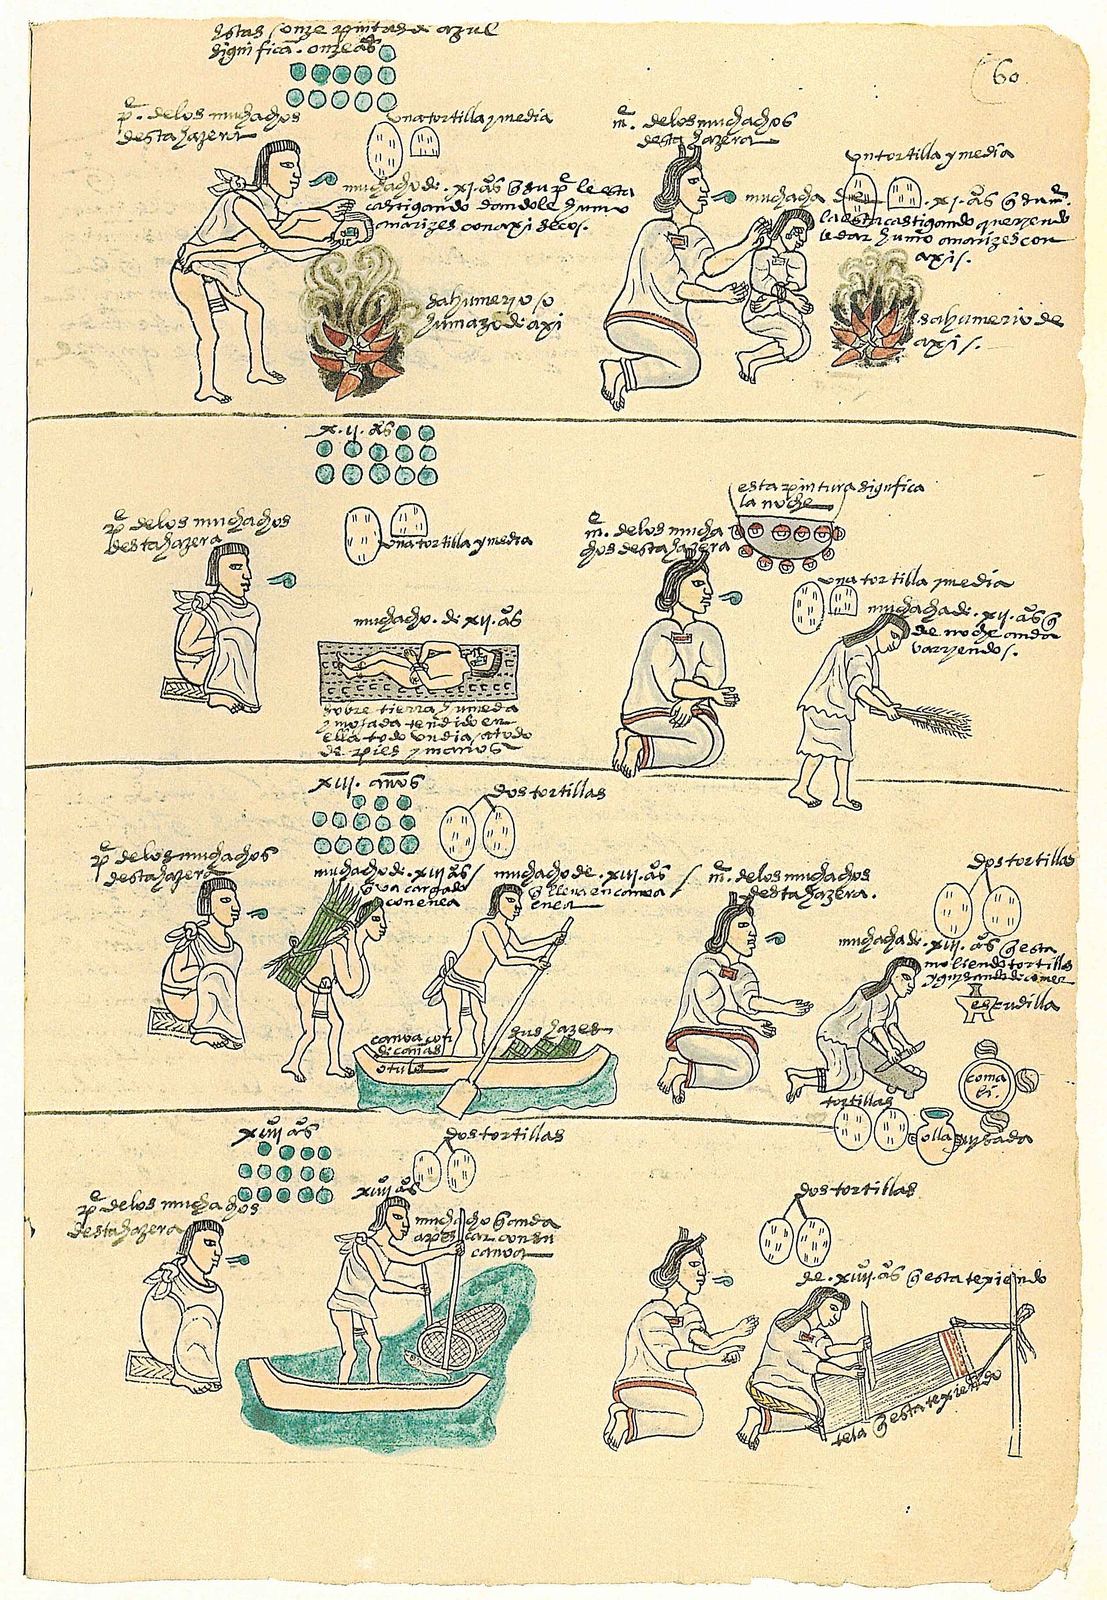 estas onze pintas de azul
significā. onze aºs
60
pº. de los muchachos
desta hazera
una tortilla y media
muchacho de. xj. aºs q̃ su pº le esta
castigando dandole humo
a narizes con axi secos.
sahumerio o
humazo de axi
mº. de los muchachos
desta hazera
un tortilla y media
muchacha de. xj. aºs q̃ su mº.
la esta castigando queriendo
le dar humo a narizes con
axi.
sahumerio de
axi.
x.ij. aºs
pº de los muchachos
desta hazera
una tortilla y media
muchacho. de xij. aºs
sobre tierra humeda
y mojada tendido en
ella todo un dia / atado
de pies y manos
esta pintura significa
la noche
mº. de los mucha
chos desta hazera
una tortilla y media
muchacha de. xij. aºs q̃
de noche anda
varriendo.
xiij. años
dos tortillas
pº de los muchachos
desta hazera
muchacho de. xiij. aºs
q̃ va cargado
con enea
muchacho de. xiij. aºs
q̃ lleva en canoa
enea
canoa con
sus hazes
mº. de los muchachos
desta hazera.
dos tortillas
muchacha de. xiij. aºs q̃ esta
moliendo tortillas
y guisando de comer
escudilla
coma
li.
tortillas
olla guisada
xiiij aºs
dos tortillas
pº de los muchachos
desta hazera
xiiij aºs
muchacho q̃ anda
a pescar con su
canoa
dos tortillas
de. xiiij. aºs q̃ esta texiendo
tela q̃ esta texiendo